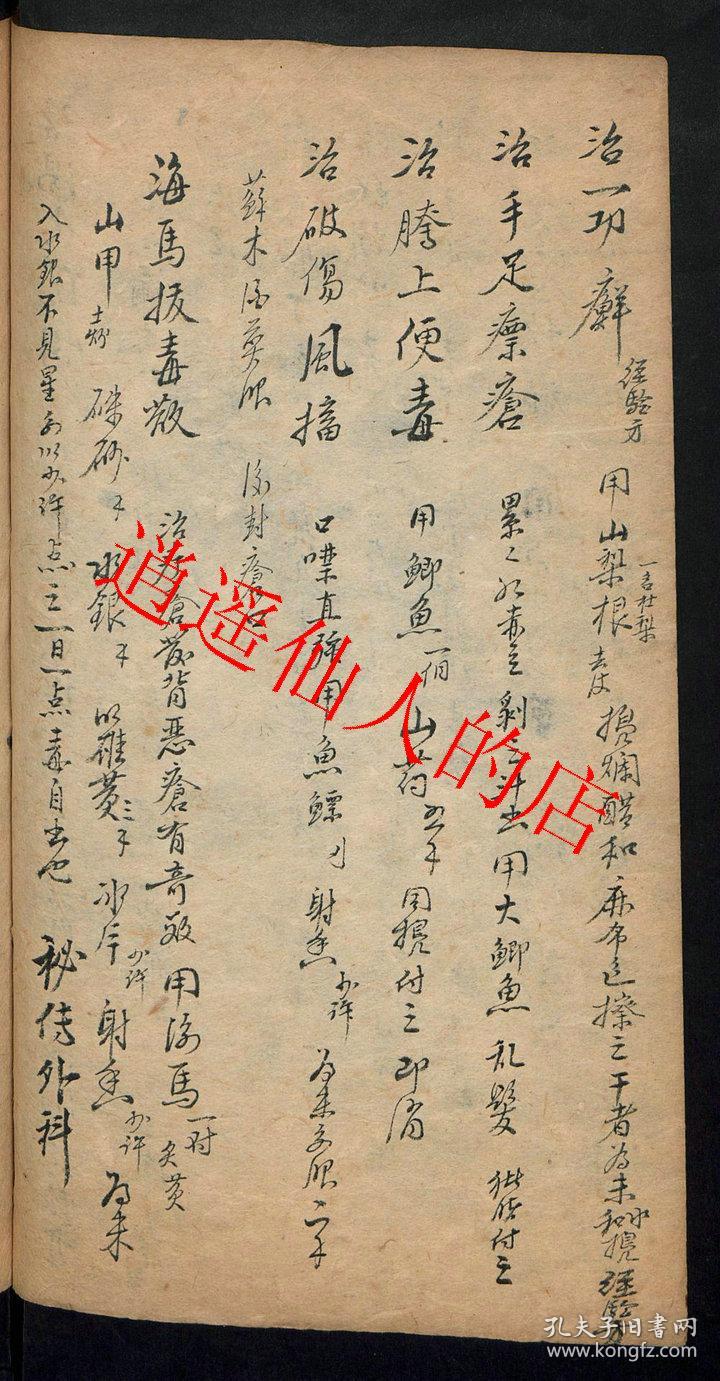 治一切癬 經驗方 用山梨根 一名杜梨 去皮 搗爛醋和麻布包擦之干者為末和水搗 經驗方
治手足瘭瘡 累々如赤豆剝之汁出用大鯽魚乱髮 猪脂付之
治胯上便毒 用鯽魚一個山药五錢同搗付之即消
治破傷風搐 口噤直強用魚鰾 射香少許為末每服二錢
蘇木酒 服 封瘡口
海馬拔毒散 治疔瘡發背惡瘡有奇效用海馬一对炙黃
山甲土炒 硃砂 水銀 雄黃三錢 冰片少許 射香少許為末
入水銀不見星 以少許点之一日一点毒自出也 秘传外科
逍遥仙人的店
孔夫子旧书网
www.kongfz.com